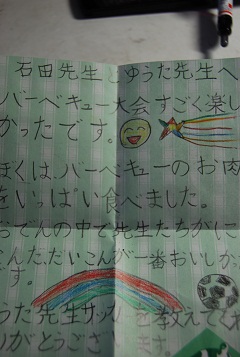 石田先生とゆうた先生へ
バーベキュー大会すごく楽し
かったです。
ぼくは、バーベキューのお肉
をいっぱい食べました。
おでんの中で先生たちがに
んた、だいこんが一番おいしかっ
です。
うた先生サッカーを教えてくれ
りがとうござ ます